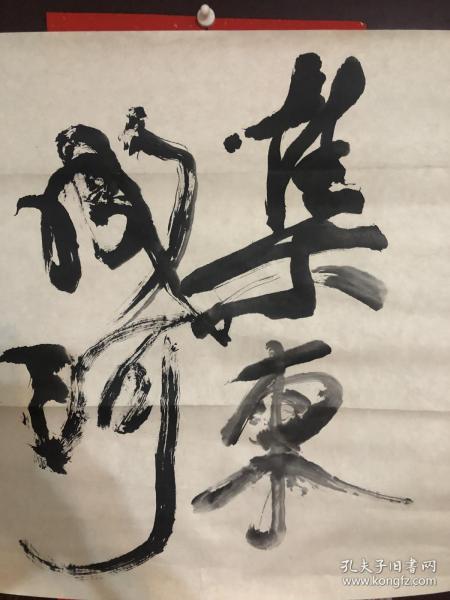 集東
珂
孔夫子旧书网
www.kongfz.com